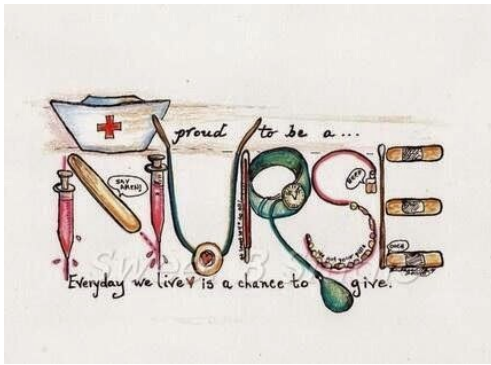 proud to be a...
SAY AHHH!
NURSE
OUCH
Everyday we live is a chance to give.